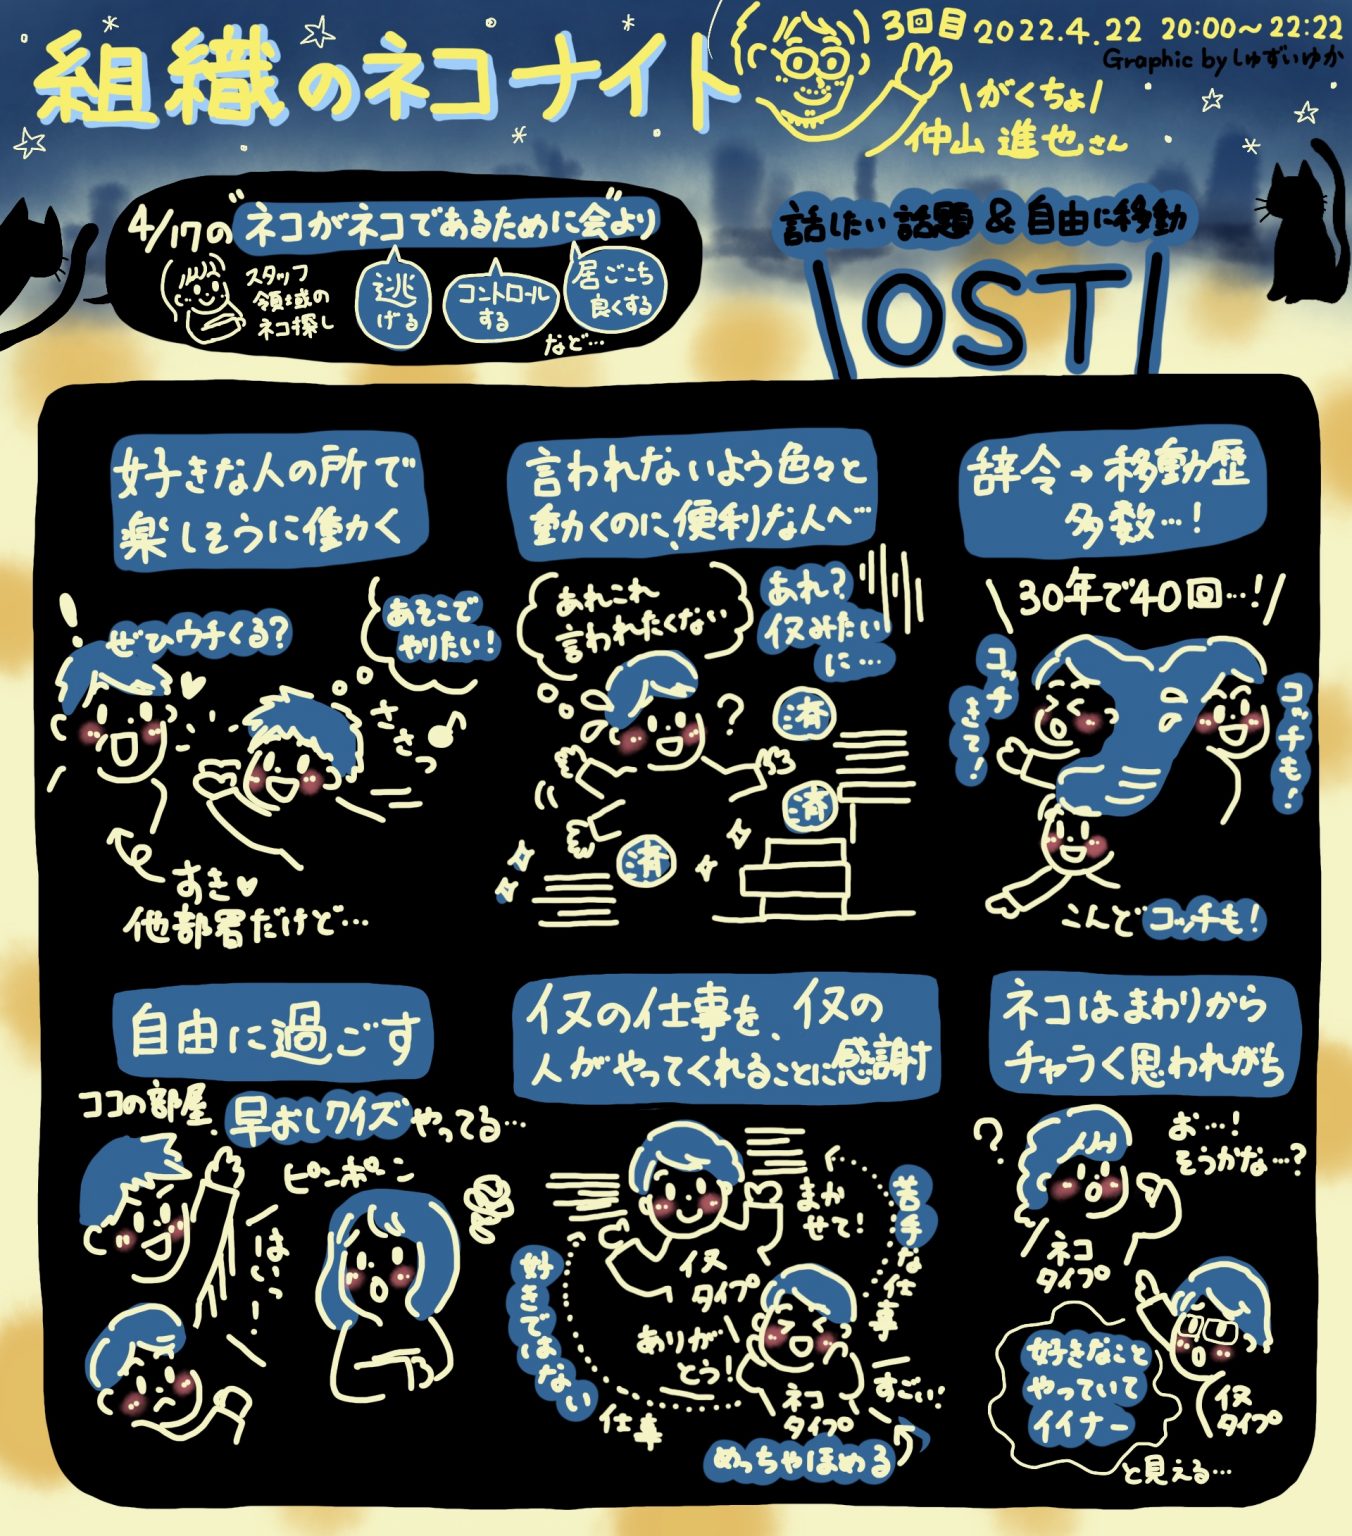 組織のネコナイト
3回目 2022.4.22 20:00〜22:22
Graphic by しゅずいゆか
\がくちょ/
仲山進也さん
4/17の"ネコがネコであるために会"より
スタッフ
領域の
ネコ探し
逃
げる
コントロール
する
居ごこち
良くする
など…
話したい話題&自由に移動
OST
好きな人の所で
楽しそうに働かく
ぜひウチくる?
あそこで
やりたい!
ささっ
すき♥
他部署だけど…
言われないよう色々と
動くのに、便利な人へ…
あれこれ
言われたくない
あれ?
イヌみたい
に…
?
済
済
済
辞令→移動歴
多数…!
30年で40回…!
コッチ
きて!
コッチも!
こんどコッチも!
自由に過ごす
ココの部屋、早おしクイズやってる…
ピンポーン
はいっ!
イヌの仕事を、イヌの
人がやってくれることに感謝
まか
せて!
イヌ
タイプ
苦手な仕事
好きではない仕事
ありが
とう!
ネコ
タイプ
すごい!
めっちゃほめる
ネコはまわりから
チャラく思われがち
?
お…!
そうかな…?
ネコ
タイプ
好きなこと
やっていて
イイナー
イヌ
タイプ
と見える…